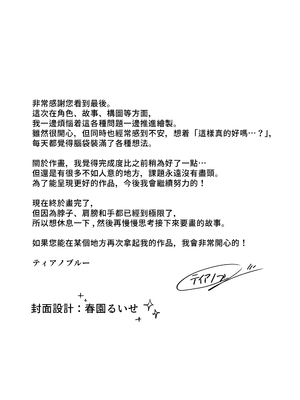 非常感謝您看到最後。
這次在角色、故事、構圖等方面,
我一邊煩惱着這各種問題一邊推進繪製。
雖然很開心,但同時也經常感到不安,想着「這樣真的好嗎…?」,
每天都覺得腦袋裝滿了各種想法。
關於作畫,我覺得完成度比之前稍為好了一點…
但還是有很多不如人意的地方,課題永遠沒有盡頭。
為了能呈現更好的作品,今後我會繼續努力的!
現在終於畫完了,
但因為脖子、肩膀和手都已經到極限了,
所以想休息一下,然後再慢慢思考接下來要畫的故事。
如果您能在某個地方再次拿起我的作品,我會非常開心的!
ティアノブルー
ティアノブ
封面設計:春園るいせ